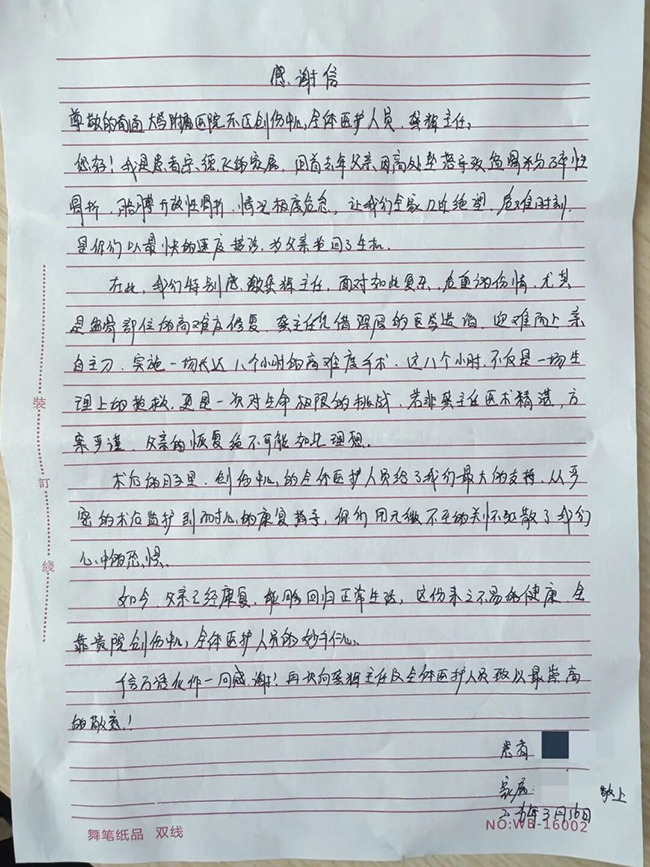 感谢信
尊敬的南通大学附属医院东区创伤中心全体医护人员、龚辉主任：
您好！我是患者宗德飞的家属，因着去年父亲因高处坠落导致盆骨粉碎性
骨折，胳膊开放性骨折，情况极度危急，让我们全家几近绝望，危难时刻，
是你们以最快的速度救治，为父亲抢回了生机。
在此，我们特别感激龚辉主任，面对如此复杂、危重的伤情，尤其
是盆骨部位的高难度修复，龚主任凭借深厚的医学造诣，迎难而上亲
自主刀，实施一场长达八个小时的高难度手术。这八个小时，不仅是一场生
理上的抢救，更是一次对生命极限的挑战，若非龚主任医术精湛，方
案严谨，父亲的恢复绝不可能如此理想。
术后的日子里，创伤中心的全体医护人员给了我们最大的支持，从严
密的术后监护到耐心的康复指导，你们用无微不至的关怀驱散了我们
心中的恐惧。
如今，父亲已经康复，能够回归正常生活，这份来之不易的健康，全
靠贵院创伤中心全体医护人员的妙手仁心。
千言万语化作一句感谢！再次向龚辉主任及全体医护人员致以最崇高
的敬意！
患者
家属：
敬上
3月16日
装
订
线
舞笔纸品 双线
NO:WB-16002